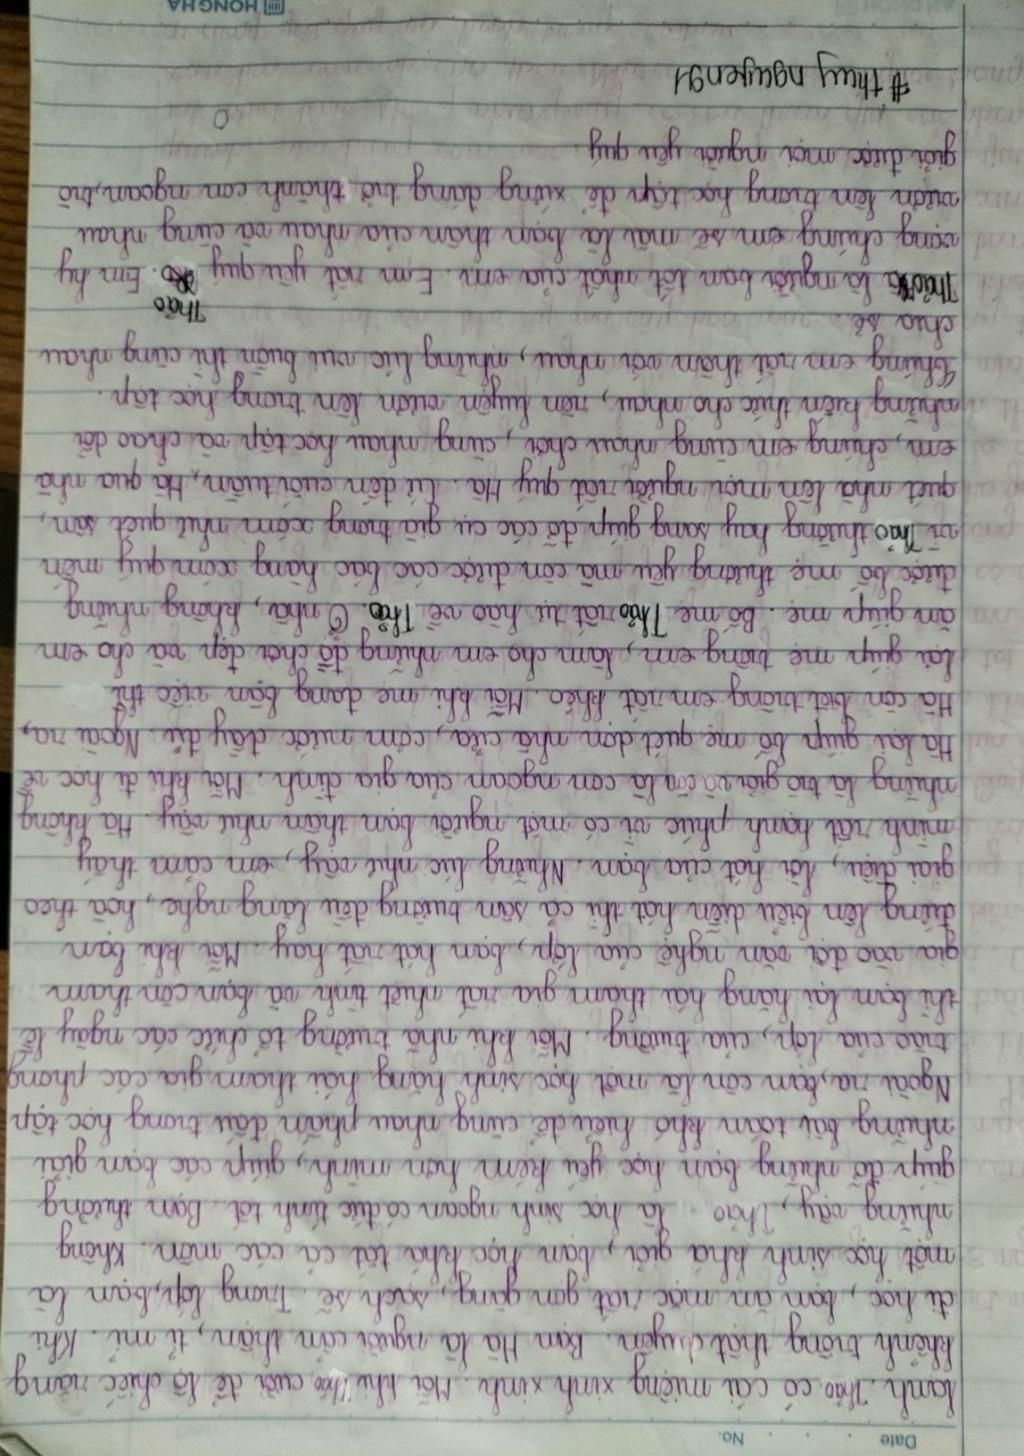 Date No.
lanh. Thảo có cái miệng xinh xinh. Mỗi khi Thảo cười để lộ chiếc răng
khểnh trông thật duyên. Bạn Hà là người cẩn thận, tỉ mỉ. Khi
đi học, bạn ăn mặc rất gọn gàng, sạch sẽ. Trong lớp, bạn là
một học sinh khá giỏi, bạn học khá tất cả các môn. Không
những vậy, Thảo là học sinh ngoan có đức tính tốt. Bạn thường
giúp đỡ những bạn học yếu kém hơn mình, giúp các bạn giải
những bài toán khó hiểu để cùng nhau phấn đấu trong học tập
Ngoài ra, bạn còn là một học sinh hăng hái tham gia các phong
trào của lớp, của trường. Mỗi khi nhà trường tổ chức các ngày lễ
thì bạn lại hăng hái tham gia rất nhiệt tình và bạn còn tham
gia vào đội văn nghệ của lớp, bạn hát rất hay. Mỗi khi bạn
đứng lên biểu diễn hát thì cả sân trường đều lắng nghe, hòa theo
giai điệu, lời hát của bạn. Những lúc như vậy, em cảm thấy
mình rất hạnh phúc vì có một người bạn thân như vậy. Hà không
những là trò giỏi và còn là con ngoan của gia đình. Mỗi khi đi học về
Hà lại giúp bố mẹ quét dọn nhà cửa, cơm nước đầy đủ. Ngoài ra,
Hà còn biết trông em rất khéo. Mỗi khi mẹ đang bận việc thì
lại giúp mẹ trông em, làm cho em những đồ chơi đẹp và cho em
ăn giúp mẹ. Bố mẹ Thảo rất tự hào về Thảo. Ở nhà, không những
được bố mẹ thương yêu mà còn được các bác hàng xóm quý mến
vì Thảo thường hay sang giúp đỡ các cụ già trong xóm như quét sân,
quét nhà lên mọi người rất quý Hà. Cứ đến cuối tuần, Hà qua nhà
em, chúng em cùng nhau chơi, cùng nhau học tập và chao đổi
những kiến thức cho nhau, rèn luyện vươn lên trong học tập.
Chúng em rất thân với nhau, những lúc vui buồn thì cùng nhau
chia sẻ.
Thảo là người bạn tốt nhất của em. Em rất yêu quý Thảo. Em hy
vọng chúng em sẽ mãi là bạn thân của nhau và cùng nhau
vươn lên trong học tập để xứng đáng trở thành con ngoan, trò
giỏi được mọi người yêu quý.
#thuy nguyen91
HONG HA